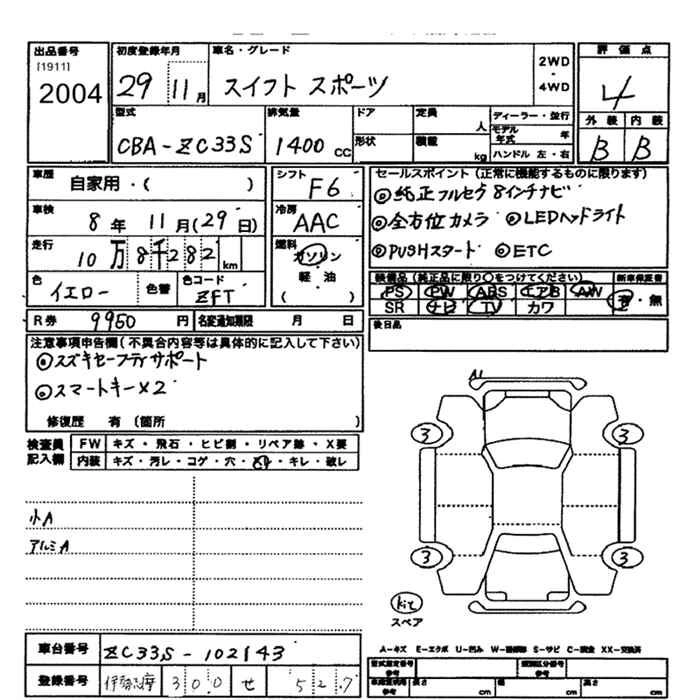 出品番号 初度登録年月 車名・グレード 評価点
[1911]
2004 29 11月 スイフト スポーツ 2WD・4WD 4
型式 排気量 ドア 定員 ディーラー・並行 外装 内装
CBA-ZC33S 1400cc 形状 人 モデル年式 年 B B
積載 kg ハンドル 左・右
車歴 自家用・( ) シフト F6 セールスポイント (正常に機能するものに限ります)
車検 8年 11月(29日) 冷房 AAC ◎純正フルセグ 8インチナビ
◎全方位カメラ ◎LEDヘッドライト
走行 10万8千282km 燃料 ガソリン ◎PUSHスタート ◎ETC
軽・油
( )
色 イエロー 色替 色コード ZFT 装備品 (純正品に限り○をつけてください) 新車保証書
PS PW ABS エアB AW 有・無
SR ナビ TV カワ
R券 9950円 名変通知期限 月 日 後日品
注意事項申告欄(不具合内容等は具体的に記入して下さい)
◎スズキセーフティサポート
◎スマートキー×2
修復歴 有(箇所 )
検査員記入欄 FW キズ・飛石・ヒビ割・リペア跡・X要
内装 キズ・汚レ・コゲ・穴・ スレ・キレ・破レ
A1
3 3
小A
アルミA
3 3
kit
スペア
車台番号 ZC33S-102143 A-キズ E-エクボ U-凹み W-補修跡 S-サビ C-腐食 XX-交換済
登録番号 伊勢志摩 300 せ 527 型式指定番号 参考 類別区分番号 参考
車庫証明用 参考 長さ cm 幅 cm 高さ cm